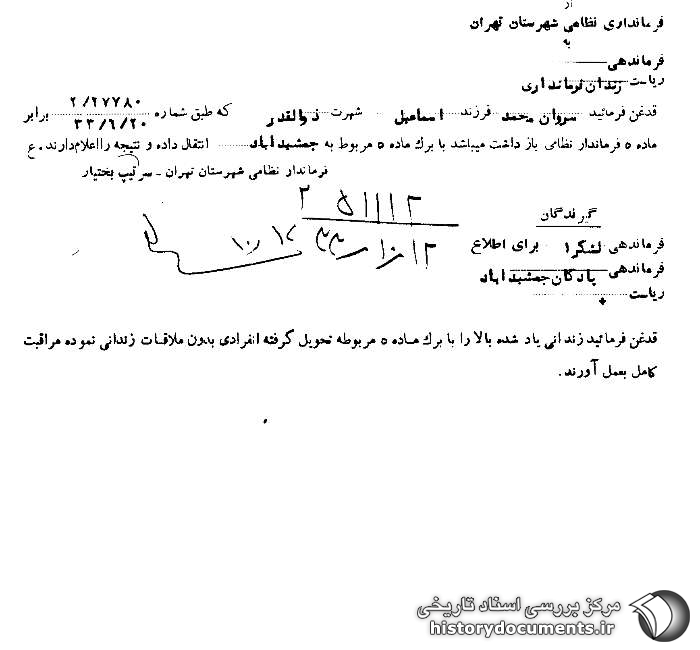 از
فرمانداری نظامی شهرستان تهران
به
فرماندهی
ریاست زندان فرمانداری
قدغن فرمائید سروان محمد فرزند اسماعیل شهرت ذوالقدر که طبق شماره ۲/۲۷۷۸۰ ۳۳/۶/۲۰ برابر
ماده ۵ فرماندار نظامی بازداشت میباشد با برك ماده ۵ مربوط به جمشیدآباد انتقال داده و نتیجه را اعلام دارند. ع
فرماندار نظامی شهرستان تهران - سرتیپ بختیار
۲ ۵۱۱۱۲
گیرندگان
فرماندهی لشکر ۱ برای اطلاع
فرماندهی پادگان جمشیدآباد
ریاست
قدغن فرمائید زندانی یاد شده بالا را با برك ماده ۵ مربوطه تحویل گرفته انفرادی بدون ملاقات زندانی نموده مراقبت
کامل بعمل آورند.
مرکز بررسی اسناد تاریخی
historydocuments.ir